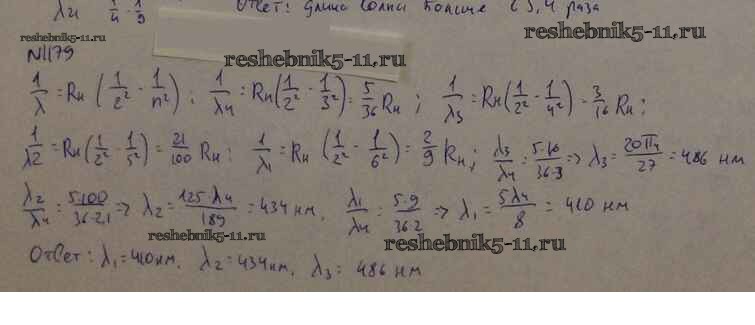 λ4 1/4 - 1/9 Ответ: длина волны больше в 5,4 раза
reshebnik5-11.ru
N1179
reshebnik5-11.ru
1/λ = Rн (1/2² - 1/n²); 1/λ4 = Rн(1/2² - 1/3²) = 5/36 Rн; 1/λ3 = Rн(1/2² - 1/4²) = 3/16 Rн;
1/λ2 = Rн(1/2² - 1/5²) = 21/100 Rн; 1/λ1 = Rн (1/2² - 1/6²) = 2/9 Rн; λ3/λ4 = 5·16/36·3 => λ3 = 20λ4/27 = 486 нм
λ2/λ4 = 5·100/36·21 => λ2 = 125λ4/189 = 434 нм, λ1/λ4 = 5·9/36·2 => λ1 = 5λ4/8 = 410 нм
reshebnik5-11.ru
reshebnik5-11.ru
Ответ: λ1 = 410 нм, λ2 = 434 нм, λ3 = 486 нм